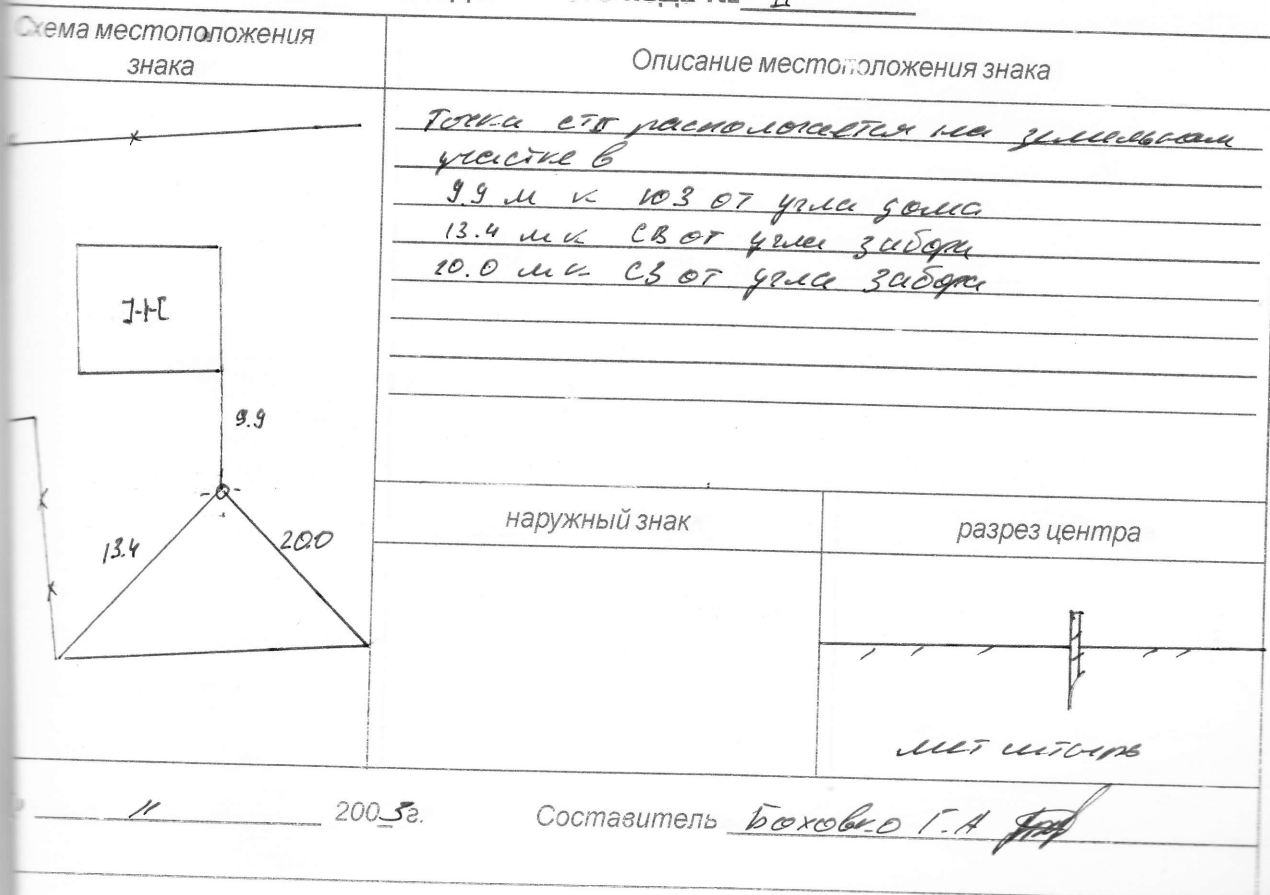 Схема местоположения
знака
Описание местоположения знака
Точка распологается на земельном
участке в
9.9 м к ЮЗ от угла дома
13.4 м к СВ от угла забора
20.0 м к СЗ от угла забора
9.9
13.4
20.0
наружный знак
разрез центра
мет штырь
11 2003г.
Составитель Боховко Г.А